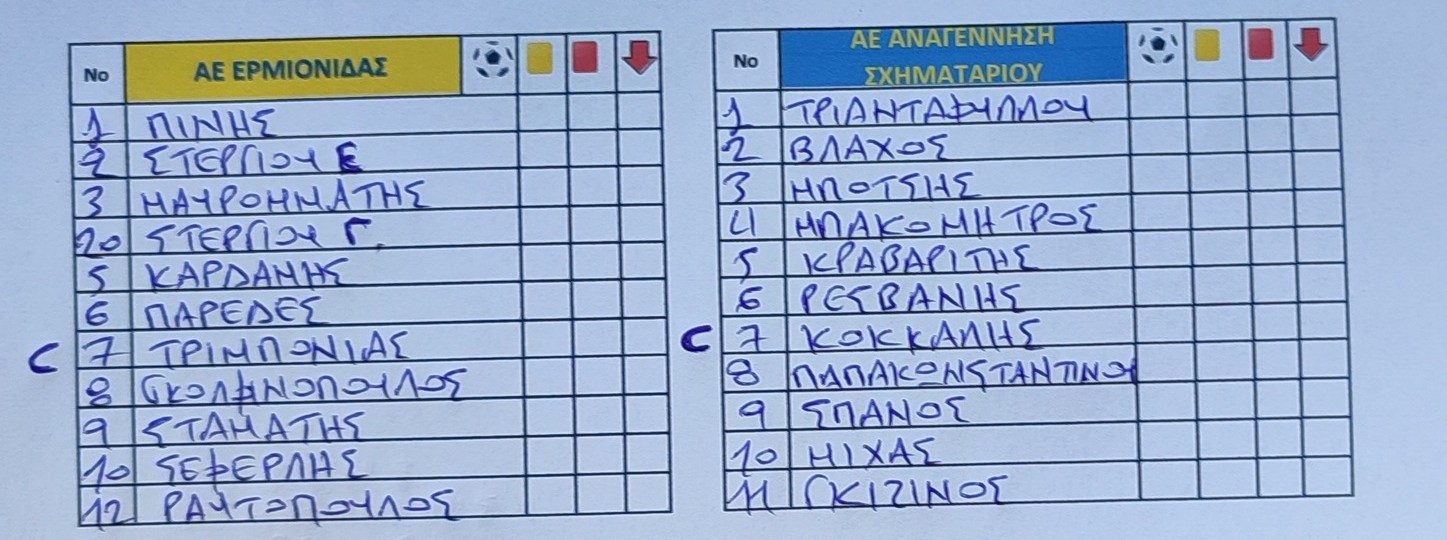 No ΑΕ ΕΡΜΙΟΝΙΔΑΣ
1 ΠΙΝΗΣ
2 ΣΤΕΡΓΙΟΥ Ε
3 ΜΑΥΡΟΜΜΑΤΗΣ
20 ΣΤΕΡΓΙΟΥ Γ.
5 ΚΑΡΔΑΜΗΣ
6 ΠΑΡΕΔΕΣ
C 7 ΤΡΙΜΠΟΝΙΑΣ
8 ΓΚΟΛΦΙΝΟΠΟΥΛΟΣ
9 ΣΤΑΜΑΤΗΣ
10 ΣΕΦΕΡΛΗΣ
12 ΡΑΥΤΟΠΟΥΛΟΣ
No ΑΕ ΑΝΑΓΕΝΝΗΣΗ
ΣΧΗΜΑΤΑΡΙΟΥ
1 ΤΡΙΑΝΤΑΦΥΛΛΟΥ
2 ΒΛΑΧΟΣ
3 ΜΠΟΤΣΗΣ
4 ΜΠΑΚΟΜΗΤΡΟΣ
5 ΚΡΑΒΑΡΙΤΗΣ
6 ΡΕΣΒΑΝΗΣ
C 7 ΚΟΚΚΑΛΗΣ
8 ΠΑΠΑΚΩΝΣΤΑΝΤΙΝΟΥ
9 ΣΠΑΝΟΣ
10 ΜΙΧΑΣ
11 ΓΚΙΖΙΝΟΣ